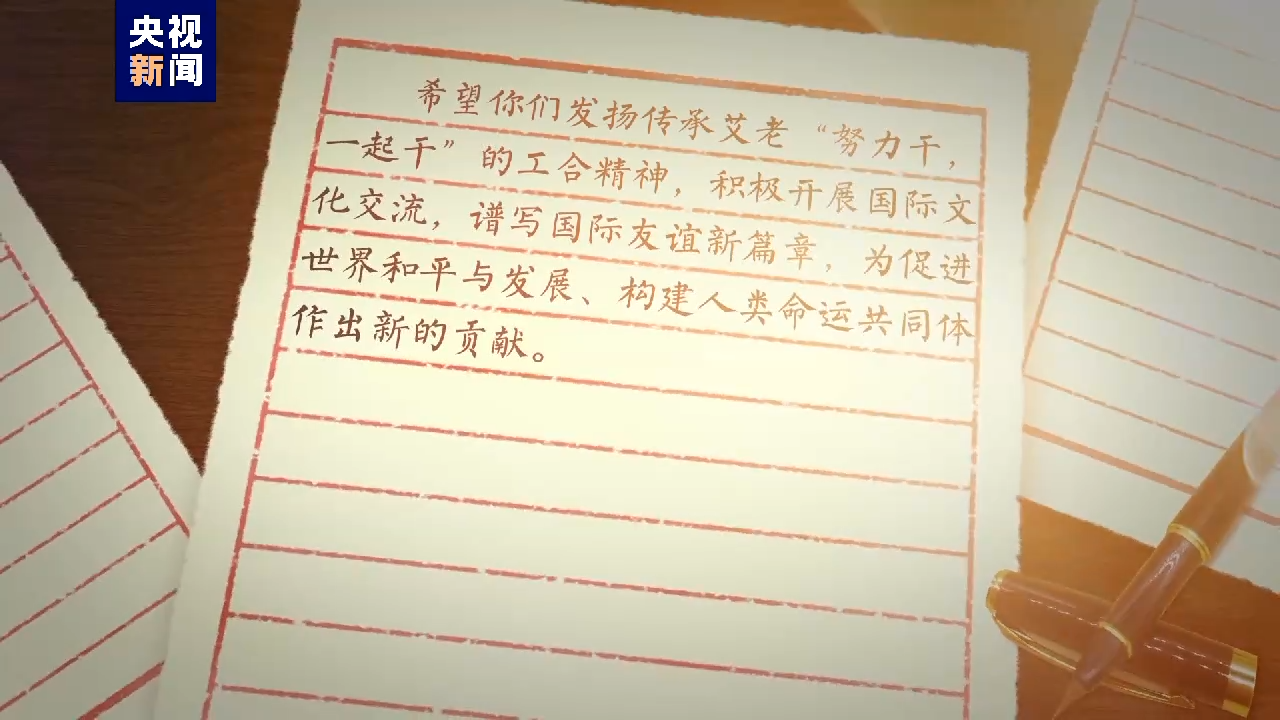 央视
新闻
希望你们发扬传承艾老“努力干，
一起干”的工合精神，积极开展国际文
化交流，谱写国际友谊新篇章，为促进
世界和平与发展、构建人类命运共同体
作出新的贡献。